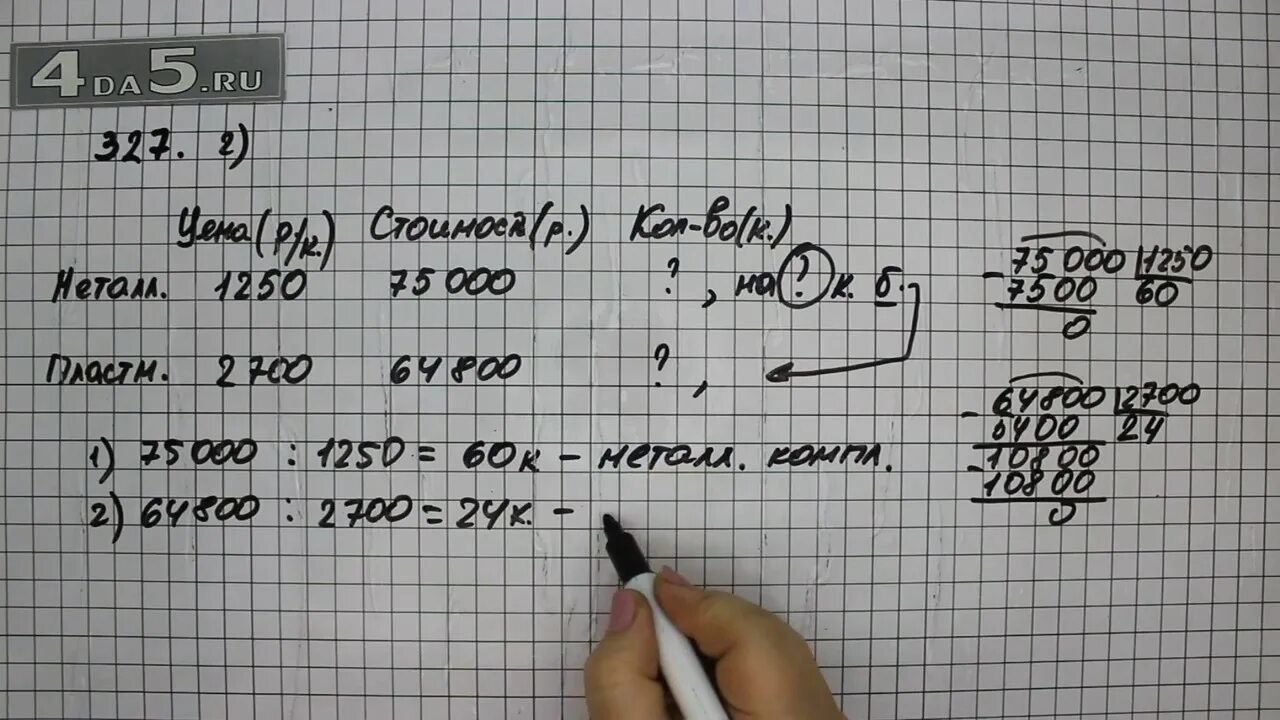 4DA5.RU
327. 2)
Цена(р/к.) Стоимость(р.) Кол-во(к.)
Металл. 1250 75000 ?, на ? к. б.
Пластм. 2700 64800 ?,
1) 75000 : 1250 = 60к - металл. компл.
2) 64800 : 2700 = 24к. -
75000 1250
- 7500 60
0
64800 2700
- 5400 24
- 10800
10800
0